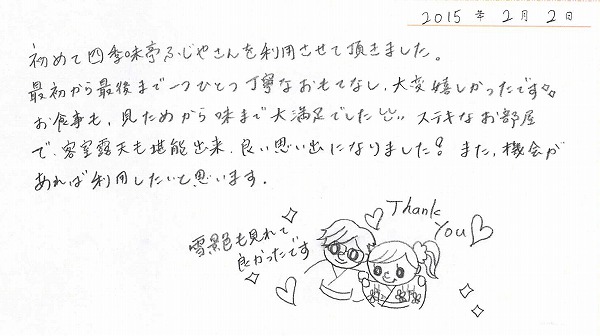 2015年2月2日
初めて四季味亭ふじやさんを利用させて頂きました。
最初から最後まで一つひとつ丁寧なおもてなし、大変嬉しかったです。
お食事も、見ためから味まで大満足でした。ステキなお部屋
で、客室露天も堪能出来、良い思い出になりました! また、機会が
あれば利用したいと思います。
雪景色も見れて
良かったです
Thank
You